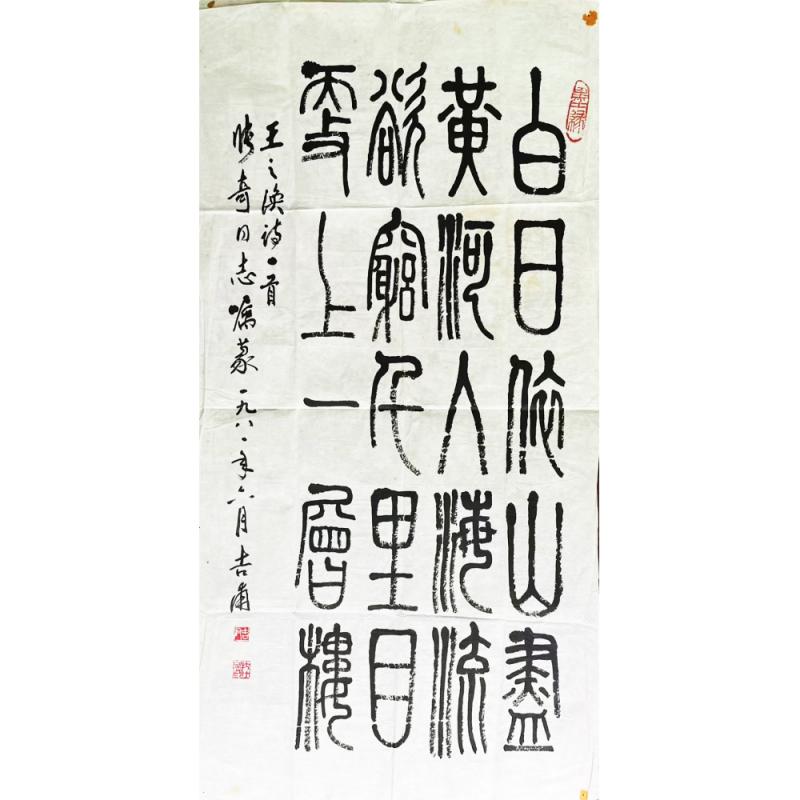 白日依山盡
黃河入海流
欲窮千里目
更上一層樓
王之渙诗一首
晓奇同志嘱篆一九八一年六月吉甫